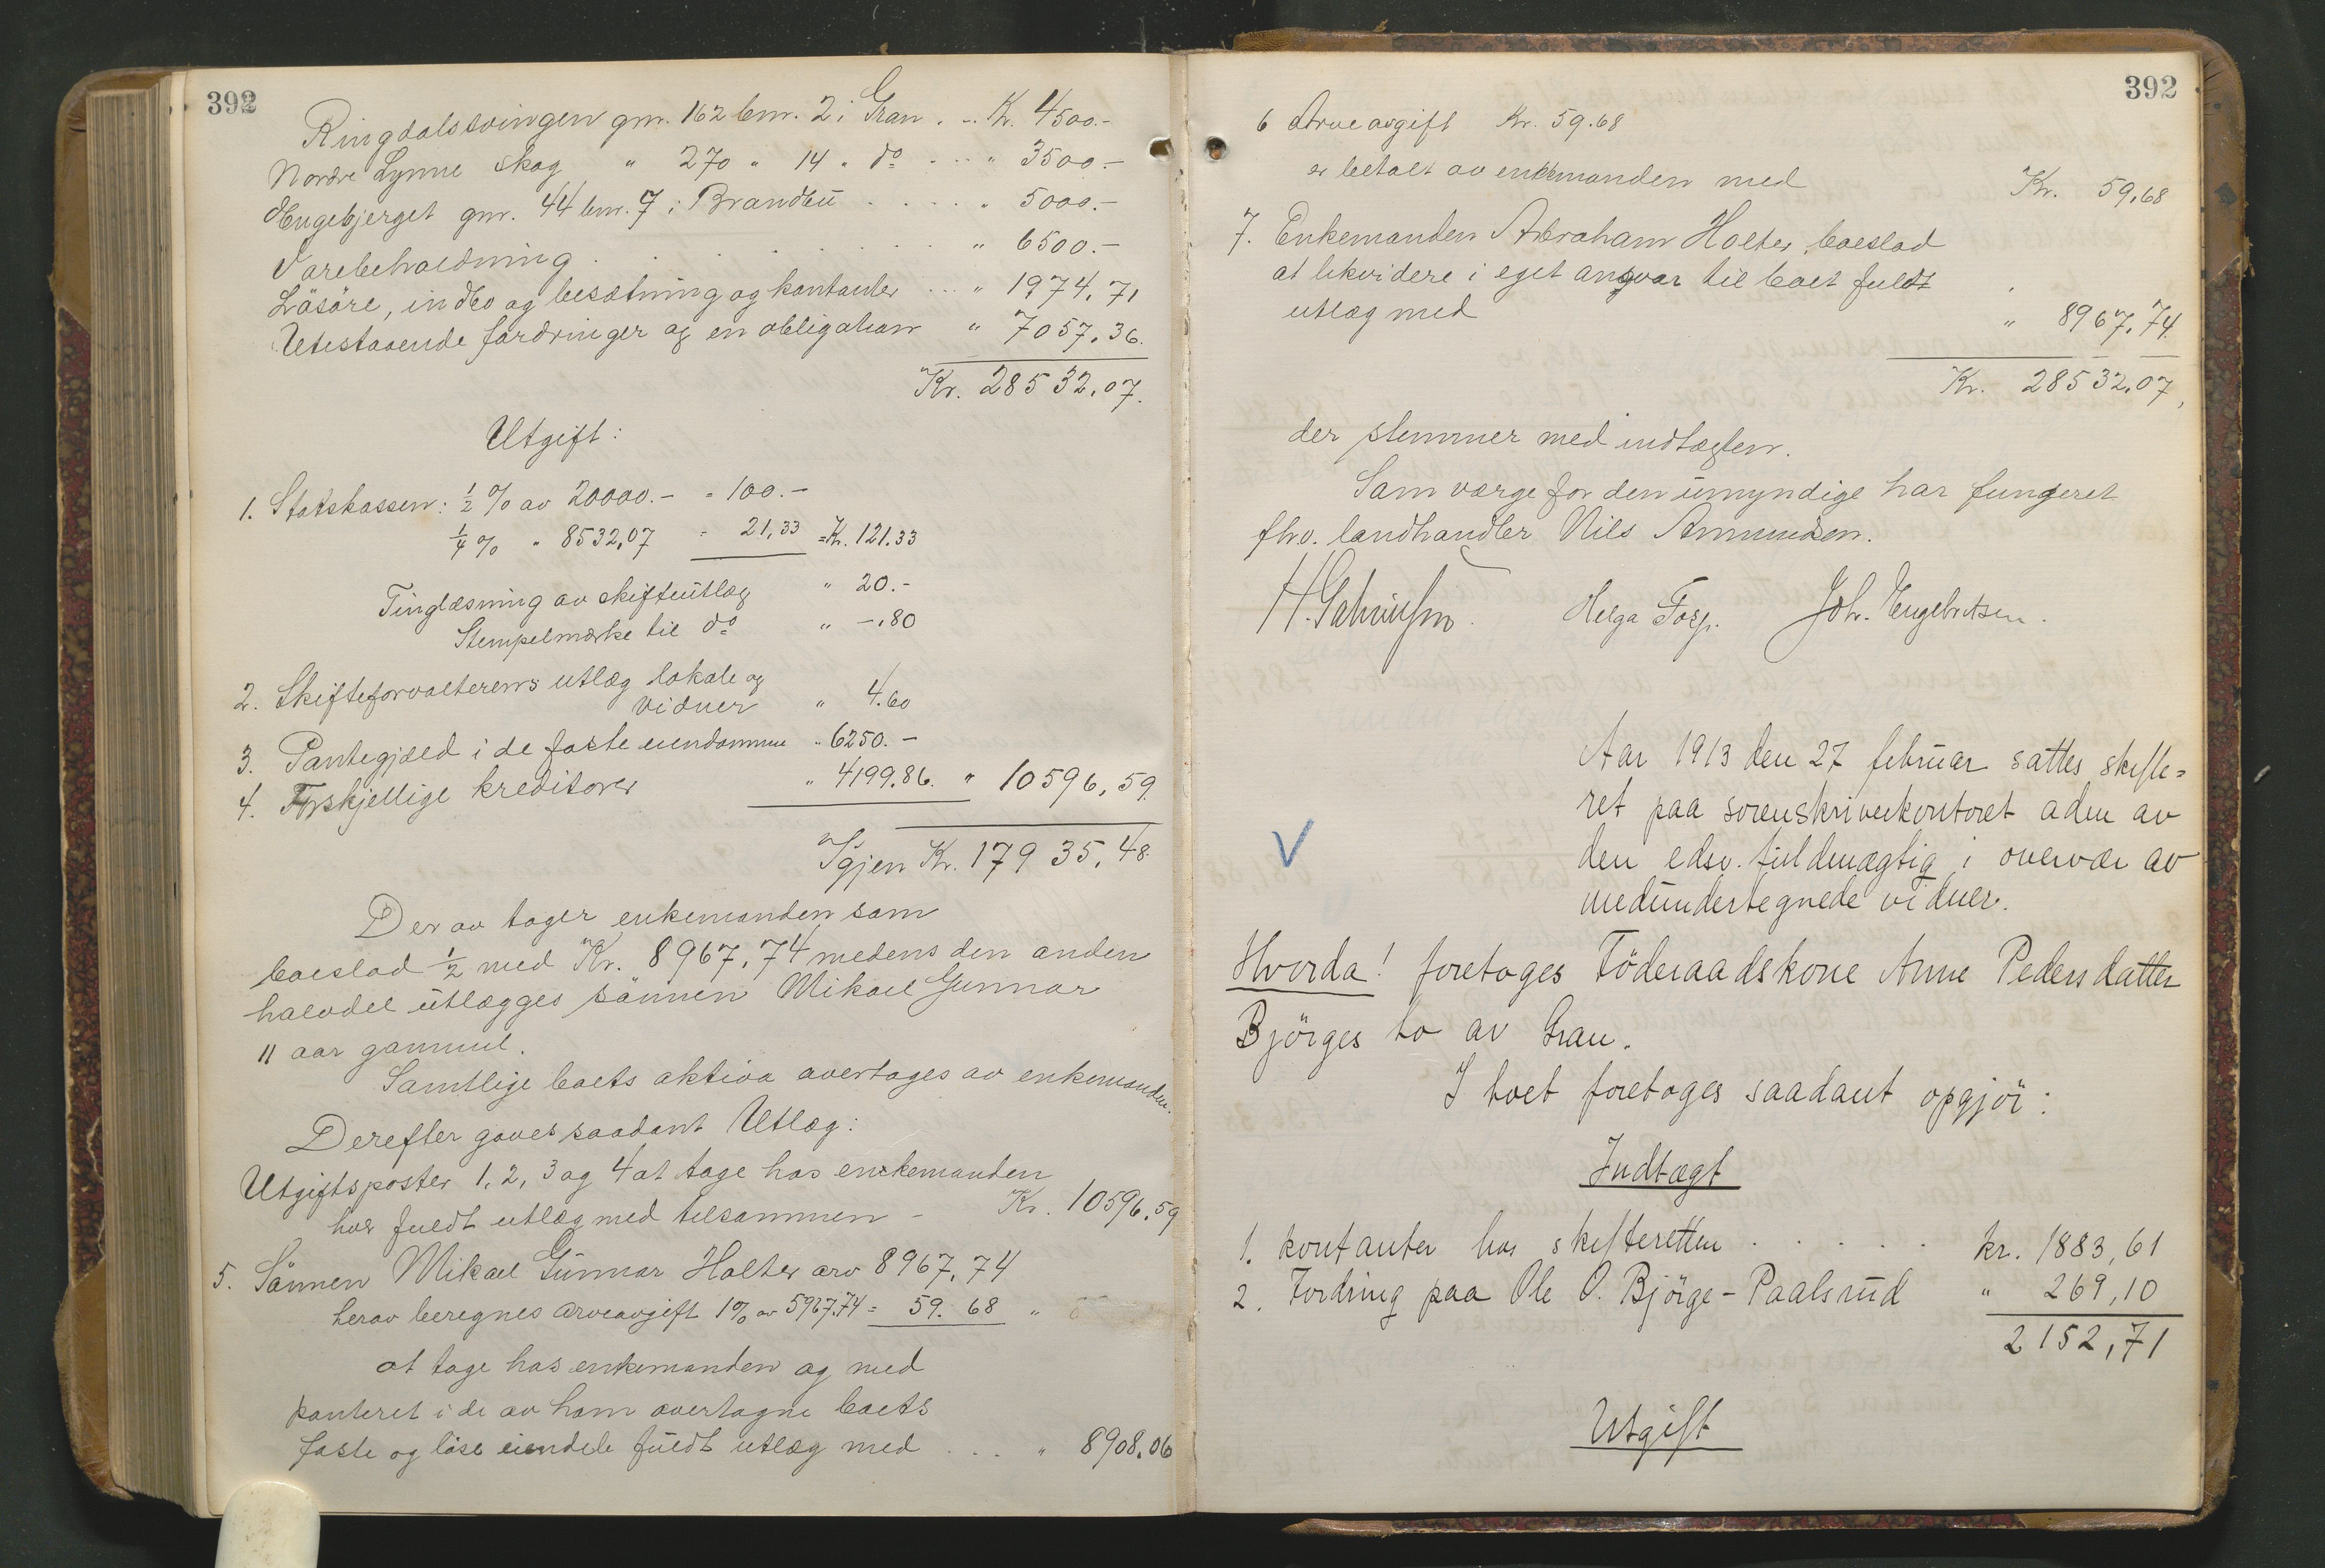 392
Ringdalssvingen gnr. 162 bnr. 2 i Gran . .. Kr. 4500.-
Nordre Lynne skog " 270 " 14 " do . ... " 3500.-
Hengebjerget gnr. 44 bnr. 7 i Brandbu . . . . . " 5000.-
Varebeholdning . . . . . . . . " 6500.-
Läsöre, indbo og besætning og kontanter ... " 1974,71
Utestaaende fordringer og en obligation " 7057.36.
Kr. 28532.07.
Utgift:
1. Statskassen: ½ % av 20000.- = 100.-
¼ % " 8532,07 = 21,33 = Kr. 121.33
Tinglæsning av skifteutlæg " 20.-
Stempelmærke til do " -.80
2. Skifteforvalterens utlæg lokale og
vidner " 4.60
3. Pantegjæld i de faste eiendomme " 6250.-
4. Forskjellige kreditorer " 4199.86. " 10596,59.
Igjen Kr. 17935.48.
Derav tager enkemanden som
boeslod ½ med Kr. 8967,74 medens den anden
halvdel utlægges sönnen Mikael Gunnar
11 aar gammel.
Samtlige boets aktiva overtages av enkemanden.
Derefter gaves saadant Utlæg:
Utgiftsposter 1, 2, 3 og 4 at tage hos enkemanden
hver fuldt utlæg med tilsammen - Kr. 10596,59
5. Sönnen Mikael Gunnar Holter arv 8967,74
herav beregnes arveavgift 1% av 5967.74 = 59.68 "
at tage hos enkemanden og med
panteret i de av ham overtagne boets
faste og löse eiendele fuldt utlæg med ... " 8908.06
392
6 Arveavgift Kr. 59.68
er betalt av enkemanden med Kr. 59,68
7. Enkemanden Abraham Holter, boeslod
at likvidere i eget ansvar til boet fuldt
utlæg med " 8967,74.
Kr. 28532,07,
der stemmer med indtægten.
Som værge for den umyndige har fungeret
fhv. landhandler Nils Amundsen.
Helga Torp. Joh. Engebretsen.
Aar 1913 den 27 februar sattes skifte=
ret paa sorenskriverkontoret aden av
den edsv. fuldmægtig i overvær av
medundertegnede vidner.
Hvorda! foretoges Föderaadskone Anne Pedersdatter
Björges bo av Gran.
I boet foretoges saadant opgjör:
Indtægt
1. kontanter hos skifteretten . . . . . kr. 1883,61
2. Fordring paa Ole O. Björge-Paalsrud " 269,10
2152,71
Utgift